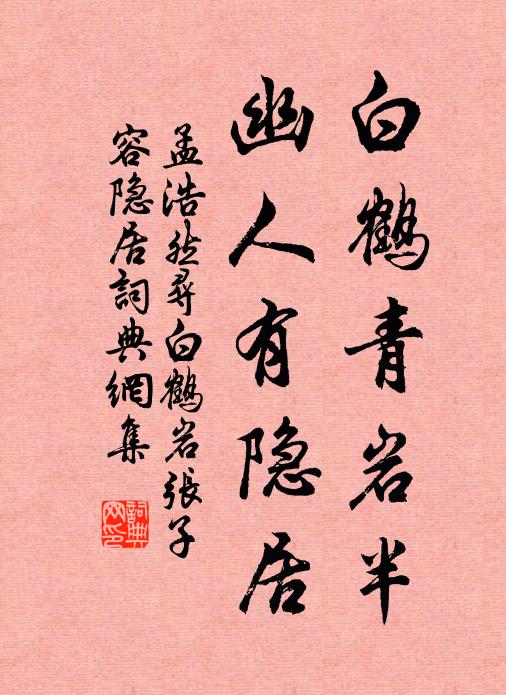 白鹤青岩半
幽人有隐居
孟浩然寻白鹤岩張子
容隐居詞典網集
詞典
网印